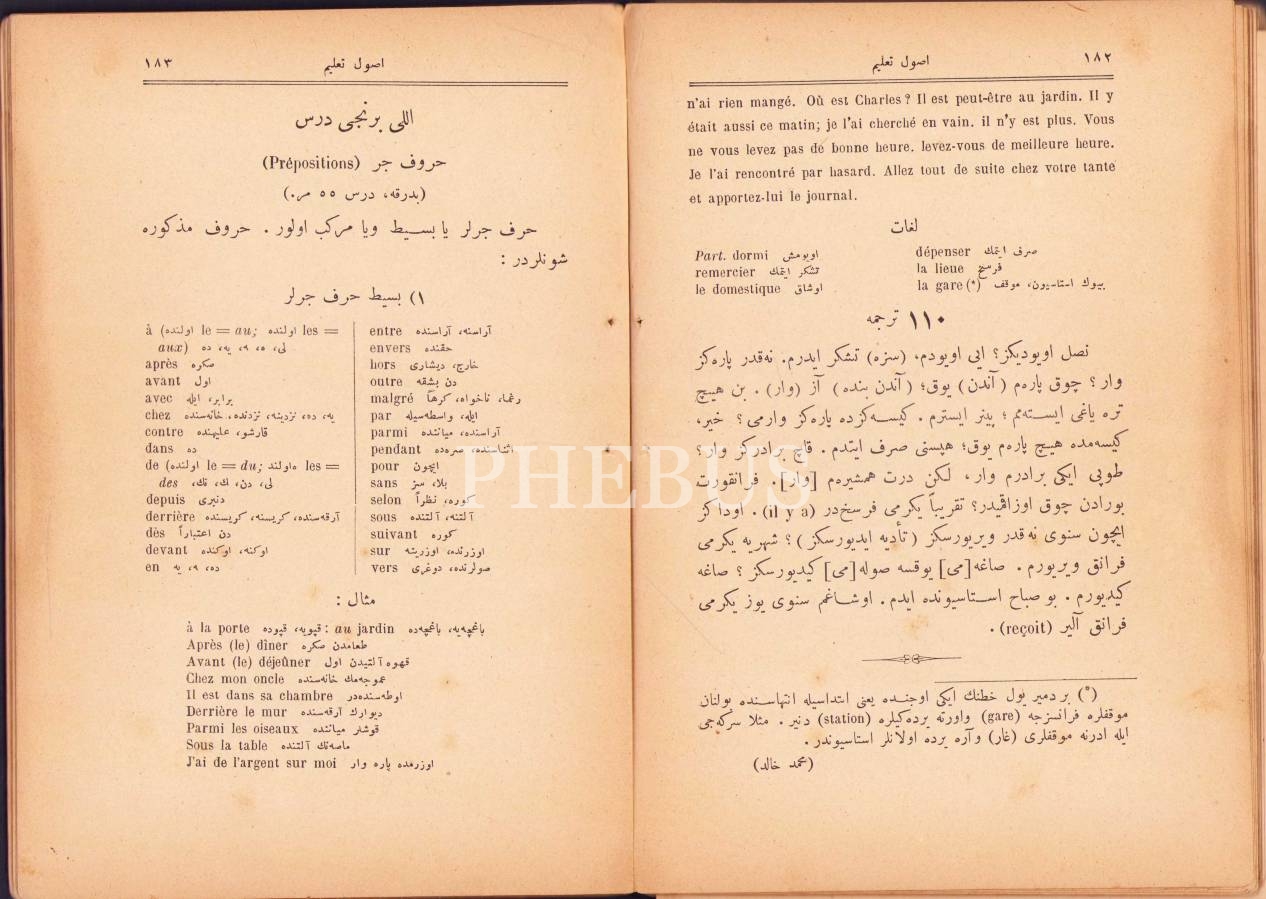 ١٨٢ اصول تعليم
n'ai rien mangé. Où est Charles? Il est peut-être au jardin. Il y
était aussi ce matin; je l'ai cherché en vain. il n'y est plus. Vous
ne vous levez pas de bonne heure. levez-vous de meilleure heure.
Je l'ai rencontré par hasard. Allez tout de suite chez votre tante
et apportez-lui le journal.
لغات
Part. dormi اويومش
remercier تشكر ايتمك
le domestique اوشاق
dépenser صرف ايتمك
la lieue فرسخ
la gare (*) بيوك استاسيون، موقف
١١٠ ترجمه
نصل اويوديكز؟ ايى اويودم، (سزه) تشكر ايدرم. نه قدر پاره كز
وار؟ چوق پاره م (آندن) يوق؛ (آندن بنده) آز (وار). بن هيچ
تره ياغى ايسته مم؛ پينر ايسترم. كيسه كزده پاره كز وارمى؟ خير،
كيسه مده هيچ پاره م يوق؛ هپسنى صرف ايتدم. قاچ برادركز وار؟
طوپى ايكى برادرم وار، لكن درت همشيره م [وار]. فرانقفورت
بورادن چوق اوزاقميدر؟ تقريباً يكرمى فرسخ در (il y a). اوداكز
ايچون سنوى نه قدر ويريورسكز (تأديه ايديورسكز)؟ شهريه يكرمى
فرانق ويريورم. صاغه [مى] يوقسه صوله [مى] كيديورسكز؟ صاغه
كيديورم. بو صباح استاسيونده ايدم. اوشاغم سنوى يوز يكرمى
فرانق آلير (reçoit).
(*) بر دمير يول خطنك ايكى اوجنده يعنى ابتداسيله انتهاسنده بولنان
موقفلره فرانسزجه (gare) واورته يرده كيلره (station) دنير. مثلا سركه جى
ايله ادرنه موقفلرى (غار) وآره يرده اولانلر استاسيوندر.
(محمد خالد)
اصول تعليم ١٨٣
اللى برنجى درس
حروف جر (Prépositions)
(بدرقه، درس ٥٥ م.)
حرف جرلر يا بسيط ويا مركب اولور. حروف مذكوره
شونلردر:
١) بسيط حرف جرلر
à (اولنده le = au; اولنده les =
aux) لى، ه، ٩، يه، ده
après صكره
avant اول
avec برابر، ايله
chez يه، ده، نزدينه، نزدنده، خانه سنده
contre قارشو، عليهنده
dans ده
de (اولنده le = du; اولنده les =
des لى، دن، ك، نك،
depuis دنبرى
derrière آرقه سنده، كريسنه، كريسنده
dès دن اعتباراً
devant اوكنه، اوكنده
en ده، ٩، يه
entre آراسنه، آراسنده
envers حقنده
hors خارج، ديشارى
outre دن بشقه
malgré رغما، ناخواه، كرهاً
par ايله، واسطه سيله
parmi آراسنده، مياننده
pendant اثناسنده، صره ده
pour ايچون
sans بلا، سز
selon كوره، نظراً
sous آلتنه، آلتنده
suivant كوره
sur اوزرنده، اوزرينه
vers صولرنده، دوغرى
مثال:
à la porte قپويه، قپوده: au jardin باغچه يه، باغچه ده
Après (le) dîner طعامدن صكره
Avant (le) déjeûner قهوه آلتيدن اول
Chez mon oncle عموجه مك خانه سنده
Il est dans sa chambre اوطه سنده در
Derrière le mur ديوارك آرقه سنده
Parmi les oiseaux قوشلر مياننده
Sous la table ماصه نك آلتنده
J'ai de l'argent sur moi اوزرمده پاره وار
PHEBUS